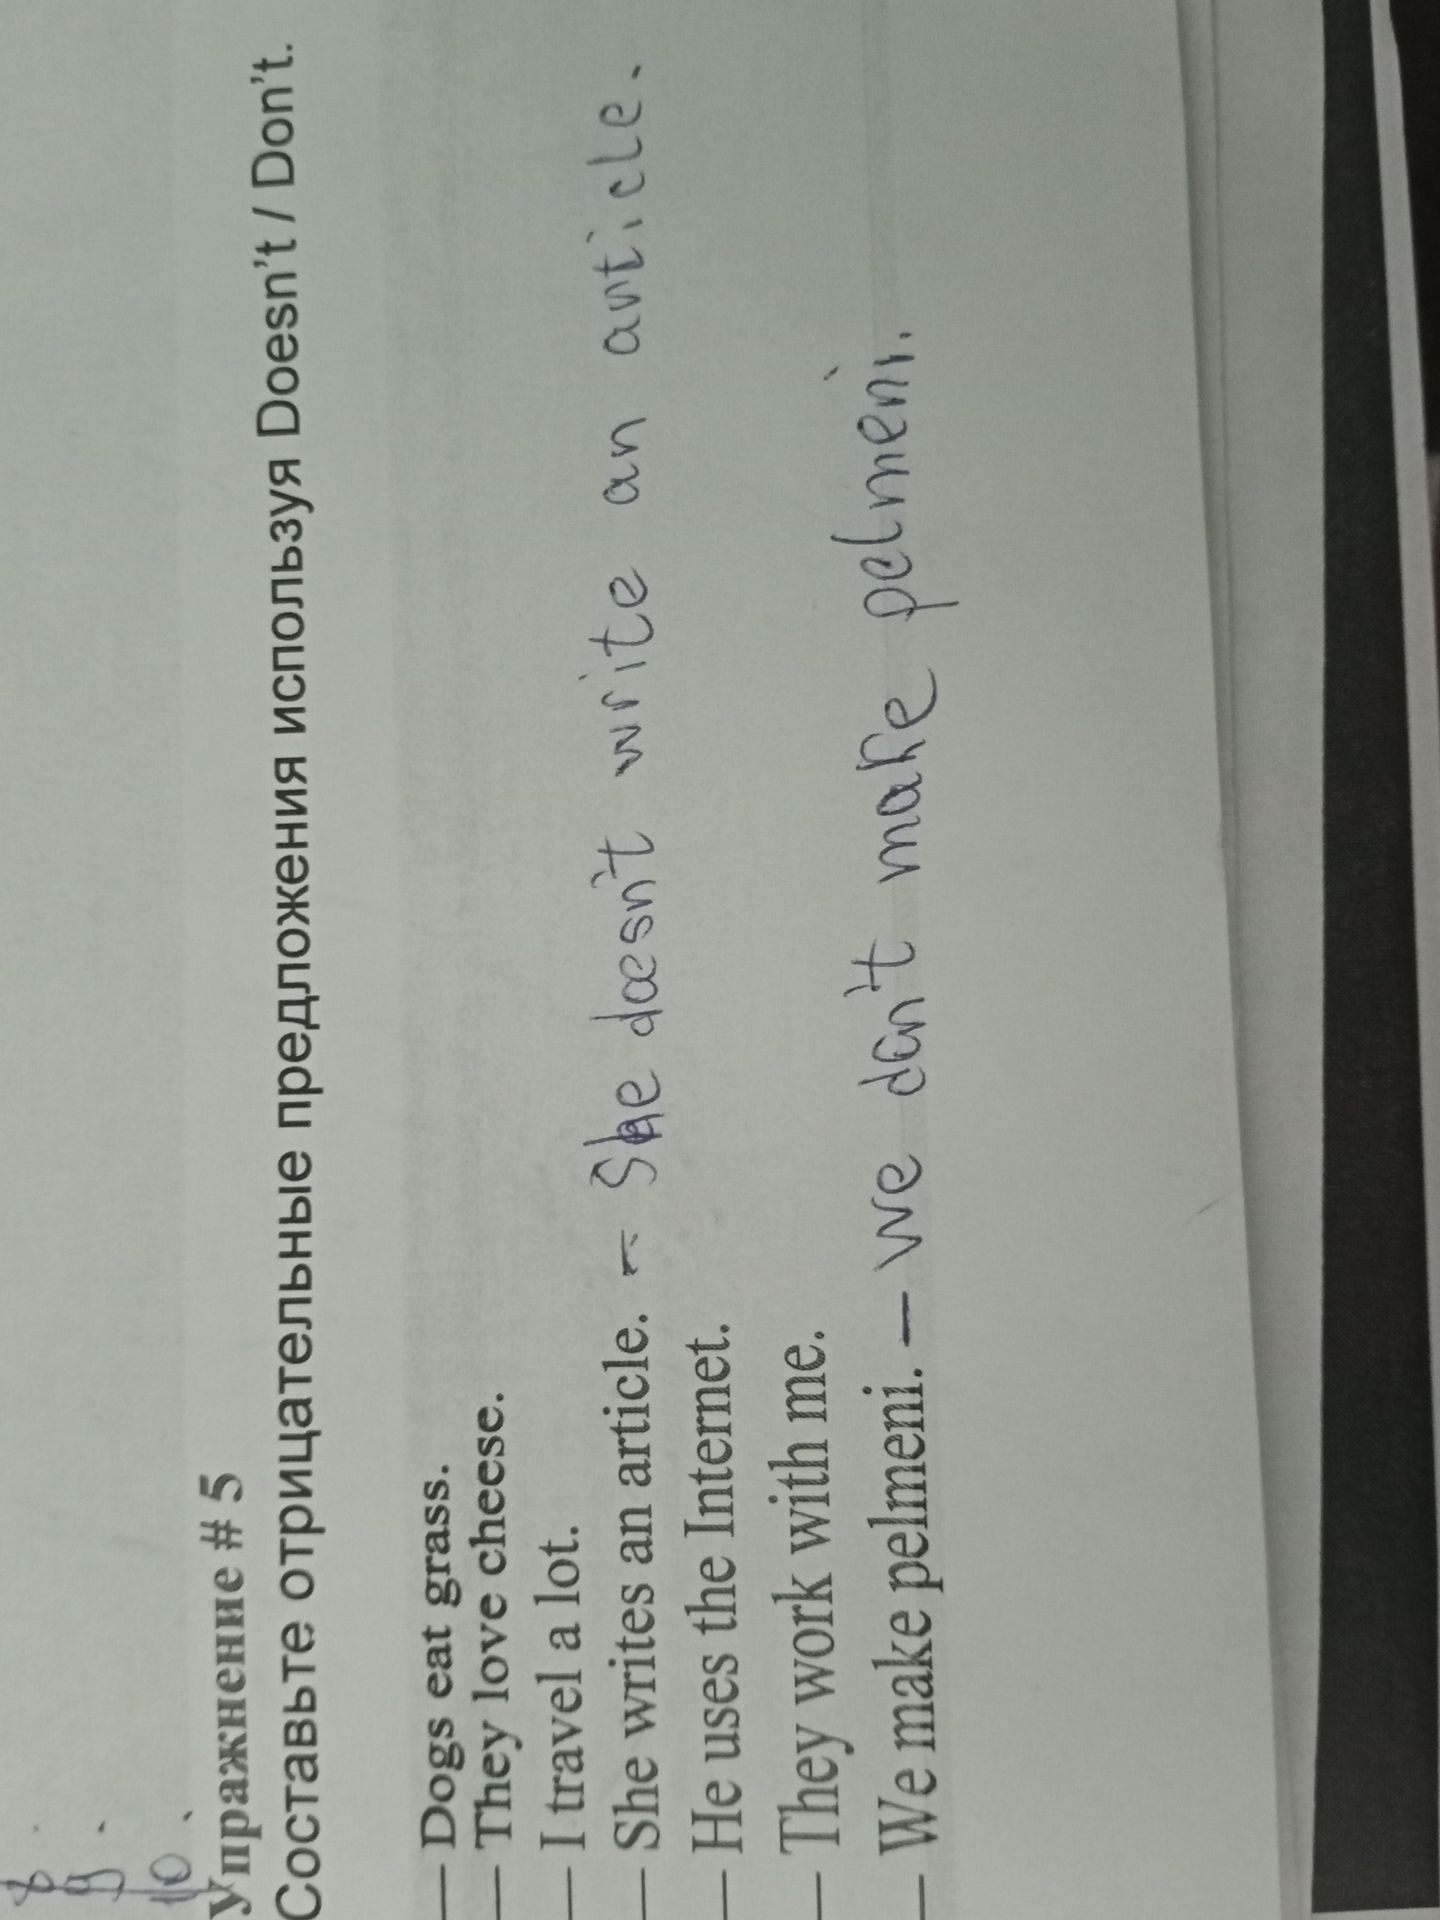 8.
9.
10.
Упражнение # 5
Составьте отрицательные предложения используя Doesn't / Don't.
— Dogs eat grass.
— They love cheese.
— I travel a lot.
— She writes an article. – She doesn't write an article.
— He uses the Internet.
— They work with me.
— We make pelmeni. – we don't make pelmeni.